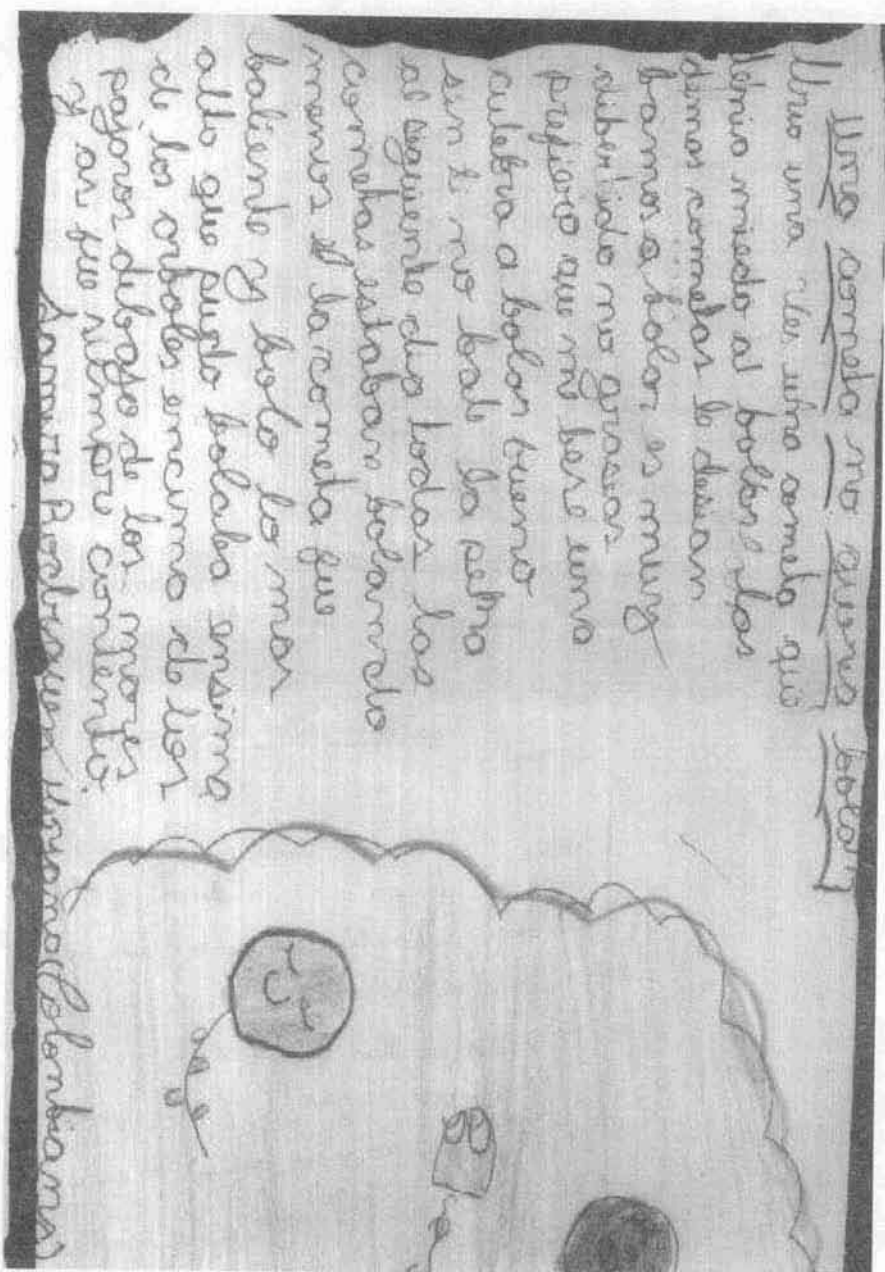 Una cometa no queria bolar
Uvo una ves una cometa que
temia miedo al bolar las
demas cometas le desian
bamos a bolar es muy
dibertido no grasias
prefiero que me bese una
culebra a bolar bueno
sin ti no bale la pena
al siguiente dia todas las
cometas estaban bolando
menos la cometa fue
baliente y bolo lo mas
alto que pudo bolaba ensima
de los arboles encima de los
pajaros debajo de los
y asi fue siempre contento
Colombiana)